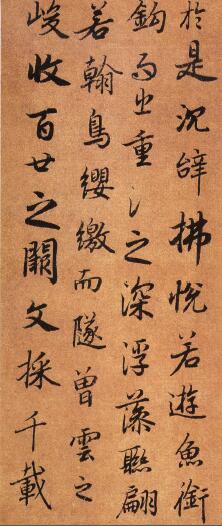 於是沉辝拂悅若遊魚銜
鈎而出重之深浮藻聯翩
若翰鳥纓繳而隧曾雲之
峻收百廿之闕文採千載